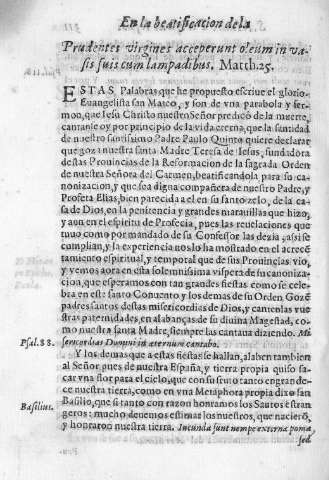 En la beatificacion de la
Prudentes virgines acceperunt oleum in va-
sis suis cum lampadibus, Matth. 25.
ESTAS Palabras que he propuesto escriue el glorio-
Euangelista san Mateo, y son de vna parabola y ser-
mon, que Iesu Christo nuestro Señor predicó de la muerte,
cantanle oy por principio de la vida eterna, que la santidad
de nuestro santissimo Padre Paulo Quinto quiere declarar
que goza nuestra santa Madre Teresa de Iesus, fundadora
destas Prouincias de la Reformacion de la sagrada Orden
de nuestra Señora del Carmen, beatificandola para su ca-
nonizacion, y que sea digna compañera de nuestro Padre, y
Profeta Elias, bien parecida a el en su santo zelo, de la ca-
sa de Dios, en la penitencia y grandes marauillas que hizo,
y aon en el espiritu de Profecia, pues las reuelaciones que
tuuo como por mandado de su Confessor las dezia, assi se
cumplian, y la experiencia nos lo ha mostrado en el acrecé-
tamiento espiritual, y temporal que de sus Prouincias vio,
y vemos aora en esta solemnissima vispera de su canoniza-
cion, que esperamos con tan grandes fiestas como se cele-
bra en este santo Conuento y los demas de su Orden, Gozé
padres santos destas misericordias de Dios, y cantenlas vue
stras paternidades, en alabanças de su diuina Magestad, co-
mo nuestra santa Madre siempre las cantaua diziendo. Mi
Psal. 88. sericordias Domini in æternum cantabo.
Y los demas que a estas fiestas se hallan, alaben tambien
al Señor pues de nuestra España, y tierra propia quiso sa-
car vna flor para el cielo, que con su fruto tanto engrande-
ce nuestra tierra, como en vna Metaphora propia dixo san
Basilius. Basilio, que si tanto con razon honramos los Santos estran
geros: mucho deuemos estimar los nuestros, que nacieró,
y honraron nuestra tierra. Iucunda sunt nempe externa poma,
sed